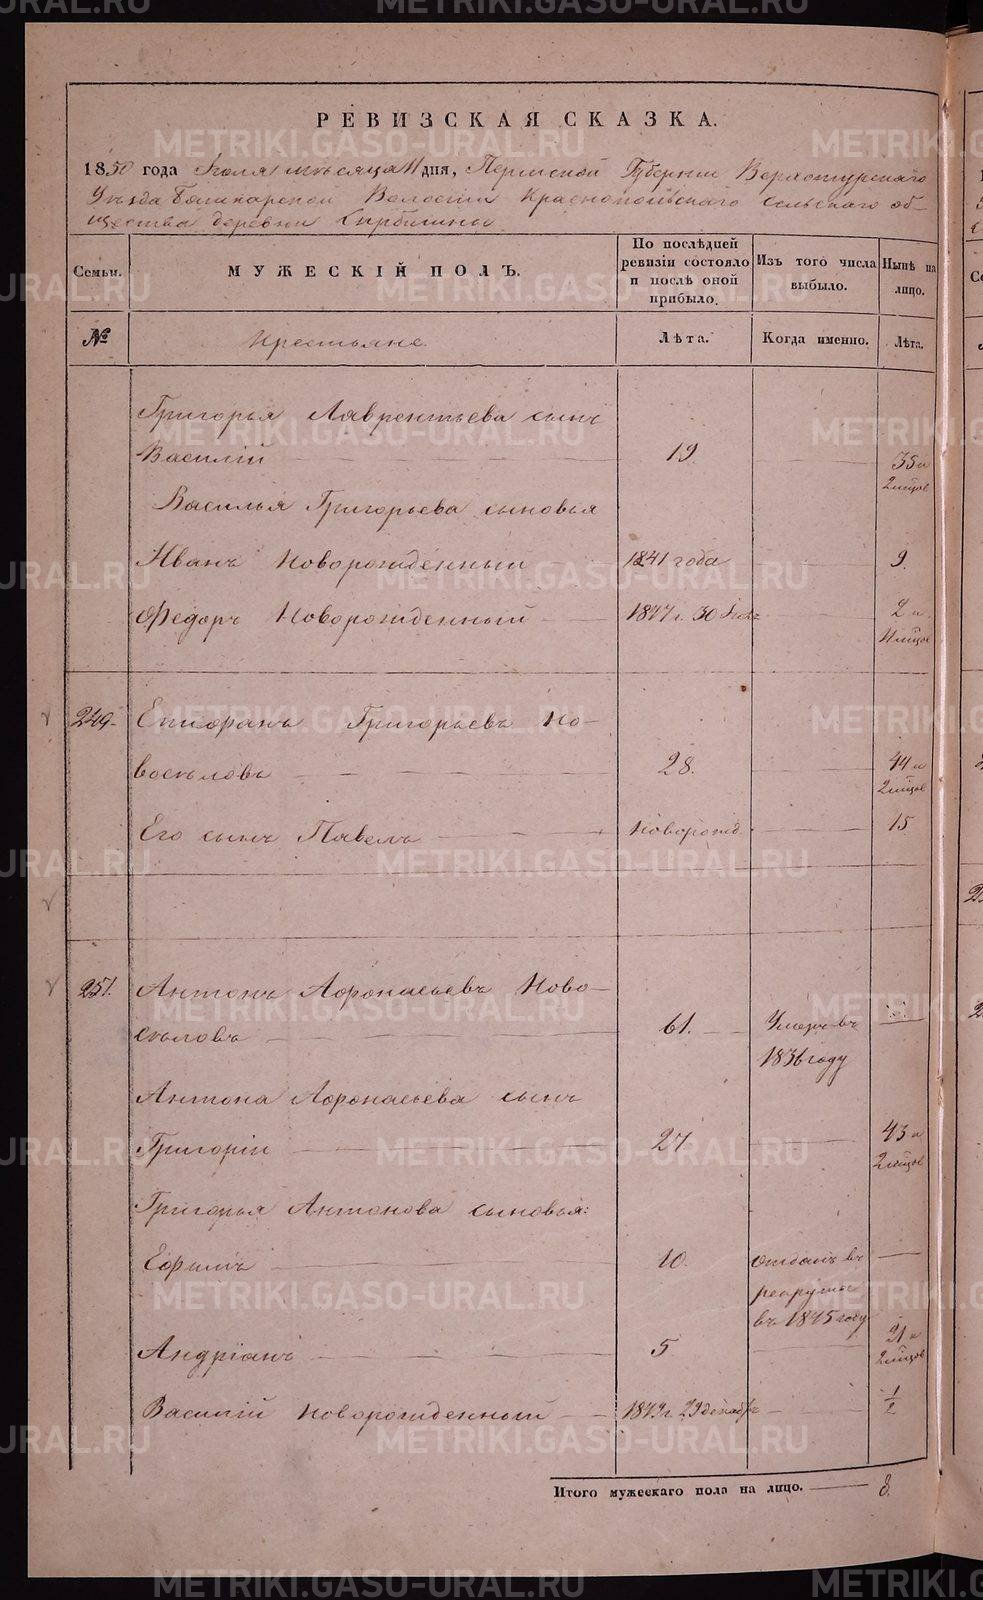 РЕВИЗСКАЯ СКАЗКА.
1850 года Іюля мѣсяца 11 дня, Пермской Губерніи Верхотурскаго
Уѣзда Башкарской Волости Краснопольскаго сельскаго об-
щества деревни
Семьи. МУЖЕСКІЙ ПОЛЪ. По послѣдней ревизіи состояло и послѣ оной прибыло. Изъ того числа выбыло. Нынѣ на лицо.
№ Крестьяне. Лѣта. Когда именно. Лѣта.
Григорья Лаврентьева сынъ
Василій 19. 35 и 2 мѣсяцов
Василья Григорьева сыновья
Иванъ новорожденный 1841 года 9.
Федоръ новорожденный 1847 г. 30 2 и мѣсяцов
249. Григорьевъ Но-
воселовъ 28. 44 и 2 мѣсяцов
Его сынъ Павелъ новорожд. 15
251. Антонъ Афонасьевъ Ново-
селовъ 61. Умеръ въ
1836 году
Антона Афонасьева сынъ
Григорій 27 43 и 2 мѣсяцов
Григорья Антонова сыновья:
Ефимъ 10. отданъ въ
рекруты
въ 1845 году
Андріанъ 5 21 и 2 мѣсяцов
Василій новорожденный 1849 г. 29 декабр 1/2
Итого мужескаго пола на лицо. 8.
METRIKI.GASO-URAL.RU